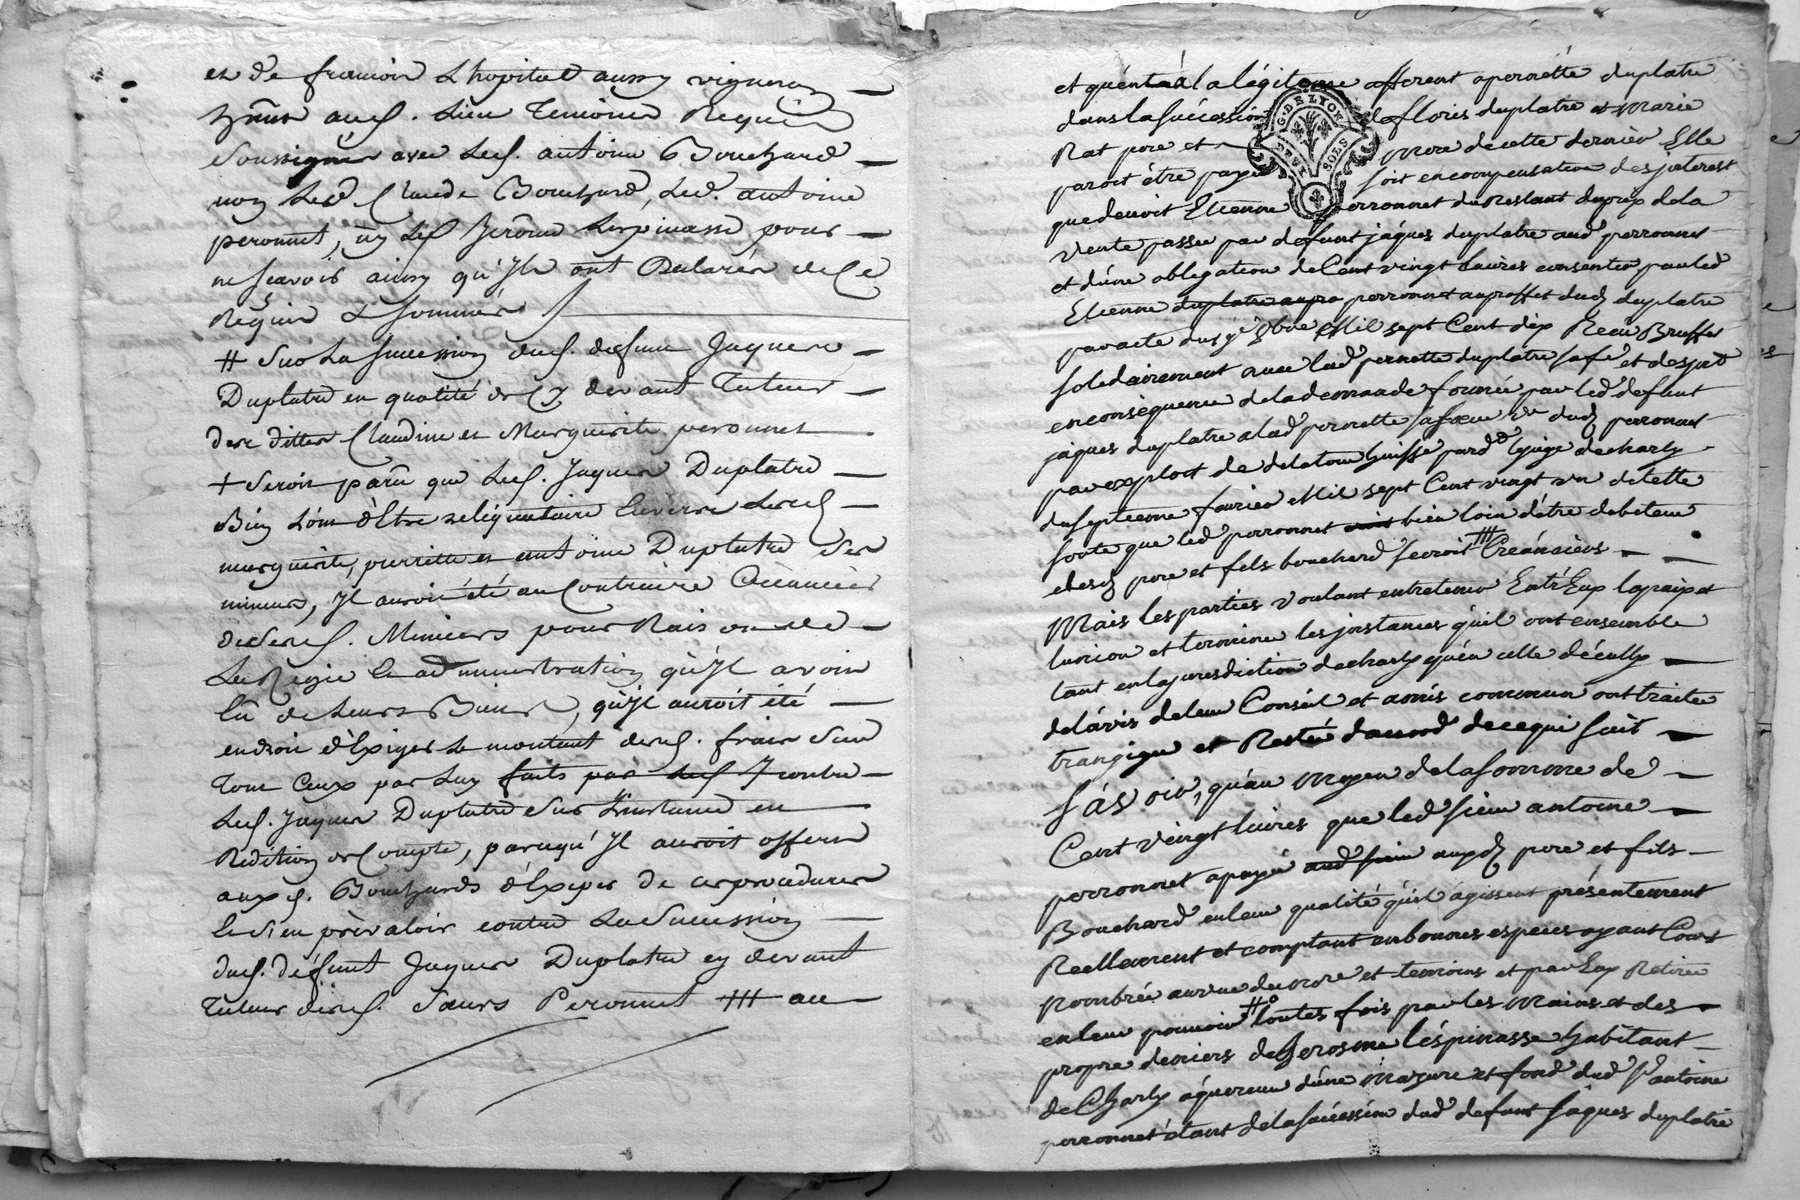 et de francois Lhopital aussy vigneron
hants aud. Lieu Temoins Requis
Soussignés avec Led. antoine Bouchard
non Led Claude Bouchard, Led. antoine
peronnet, ny Led Jerôme Lespinasse pour
ne scavoir ainsy qu'Jls ont Declarés de Ce
Requis & sommés
# Sur La succession dud. defunt Jaques
Duplatre en qualité de Cy devant Tuteur
desdittes Claudine et Marguerite peronnet
+ Seroit parû que Led. Jaques Duplatre
Bien Loin d'Estre reliquataire Envers Lesd
marguerite, pierrette et antoine Duplatre ses
mineurs, Jl auroit été au Contraire Creancier
de Sesd. Mineurs pour Raison de
La Regie & administration qu'Jl avoit
Eû de Leurs Biens, qu'Jl auroit été
endroit d'Exiger Le montant desd. frais Sur
Tous Ceux par Luy faits par Led contre
Led. Jaques Duplatre Sur L'instance en
Redition de Compte, parcequ'Jl auroit offert
auxd. Bouchards d'Exiger de ces procedures
& S'en prèvaloir contre La Succession
dud. défunt Jaques Duplatre cy devant
Tuteur desd. Sœurs Peronnet au
et quéntàl la légitime afferent a pernètte duplatre
dans la Succéssion de floris duplatre et Marie
Rat pere et mere de cette derniere Elle
paroit étre payée soit en compensation des jnterest
que devoit Etienne perronnet du Restant du prix de la
vente passée par defunt jâques duplatre aud perronnet
et d'une obligation de Cent vingt Livres consentie par led
Etienne duplatre au pro perronnet au proffit dud duplatre
par acte du 9e 8bre Mil sept Cent dix Recu Bruffet
solidairement avec lad pernette duplâtre sa fe et despuis
en conséquence de la demande formée par led defunt
jâques duplatre a lad pernette sa sœur ve dud perronnet
par exploit de delatour huissé pard le juge de charly
du septieme fevrier Mil sept Cent vingt un detelle
sorte que led perronnet bien loin d'étre debiteur
desd pere et fils bouchard seroit Créancier
Mais les parties voulant entretenir Entr'Eux la paix et
lunion et terminer les jnstances qu'il ont ensemble
tant en la jurisdiction de charly qu'en celle d'écully
de l'avis de leur Conseil et amis commun ont traité
transigeé et Resté d'accord de ce qui suit
Sàvoir, qu'au moyen de la somme de
Cent vingt livres que led sieur antoine
perronnet a payé aud sieur auxd pere et fils
Bouchard en leur qualité qu'il agissent présentement
Reellement et comptant en bonnes especes ayant Cours
Nombrée au vue du nore et temoins et par Eux Retirée
en leur pouvoir toutes fois par les Mains et des
propre deniers de Jerosme l'éspinasse habitant
de Charly aquereur d'une Mazure et fond dud Sr antoine
perronnet étant de la succéssion dud defunt jâques duplatre
G. DE LYON
DEUX SOLS